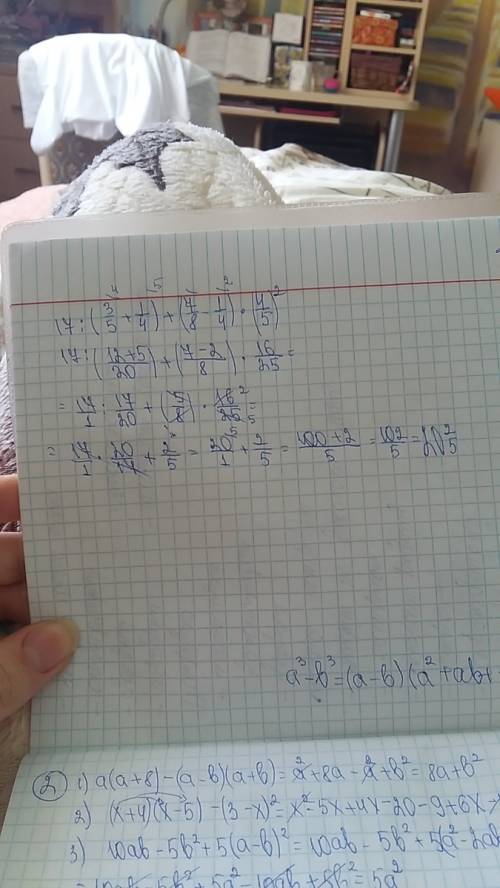 4 5 1 2
17 : (3/5 + 1/4) + (7/8 - 1/4) · (4/5)²
17 : (12+5/20) + (7-2/8) · 16/25 =
= 17/1 : 17/20 + (5/8) · 16/25 =
= 17/1 · 20/17 + 2/5 = 20/1 + 2/5 = 100+2/5 = 102/5 = 20 2/5
a³-b³=(a-b)(a²+ab+
② 1) a(a+8)-(a-b)(a+b)=a²+8a-a²+b²=8a+b²
2) (x+4)(x-5)-(3-x)²=x²-5x+4x-20-9+6x-
3) 10ab-5b²+5(a-b)²=10ab-5b²+5(a²-2ab
=10ab-5b²+5a²-10ab+5b²=5a²